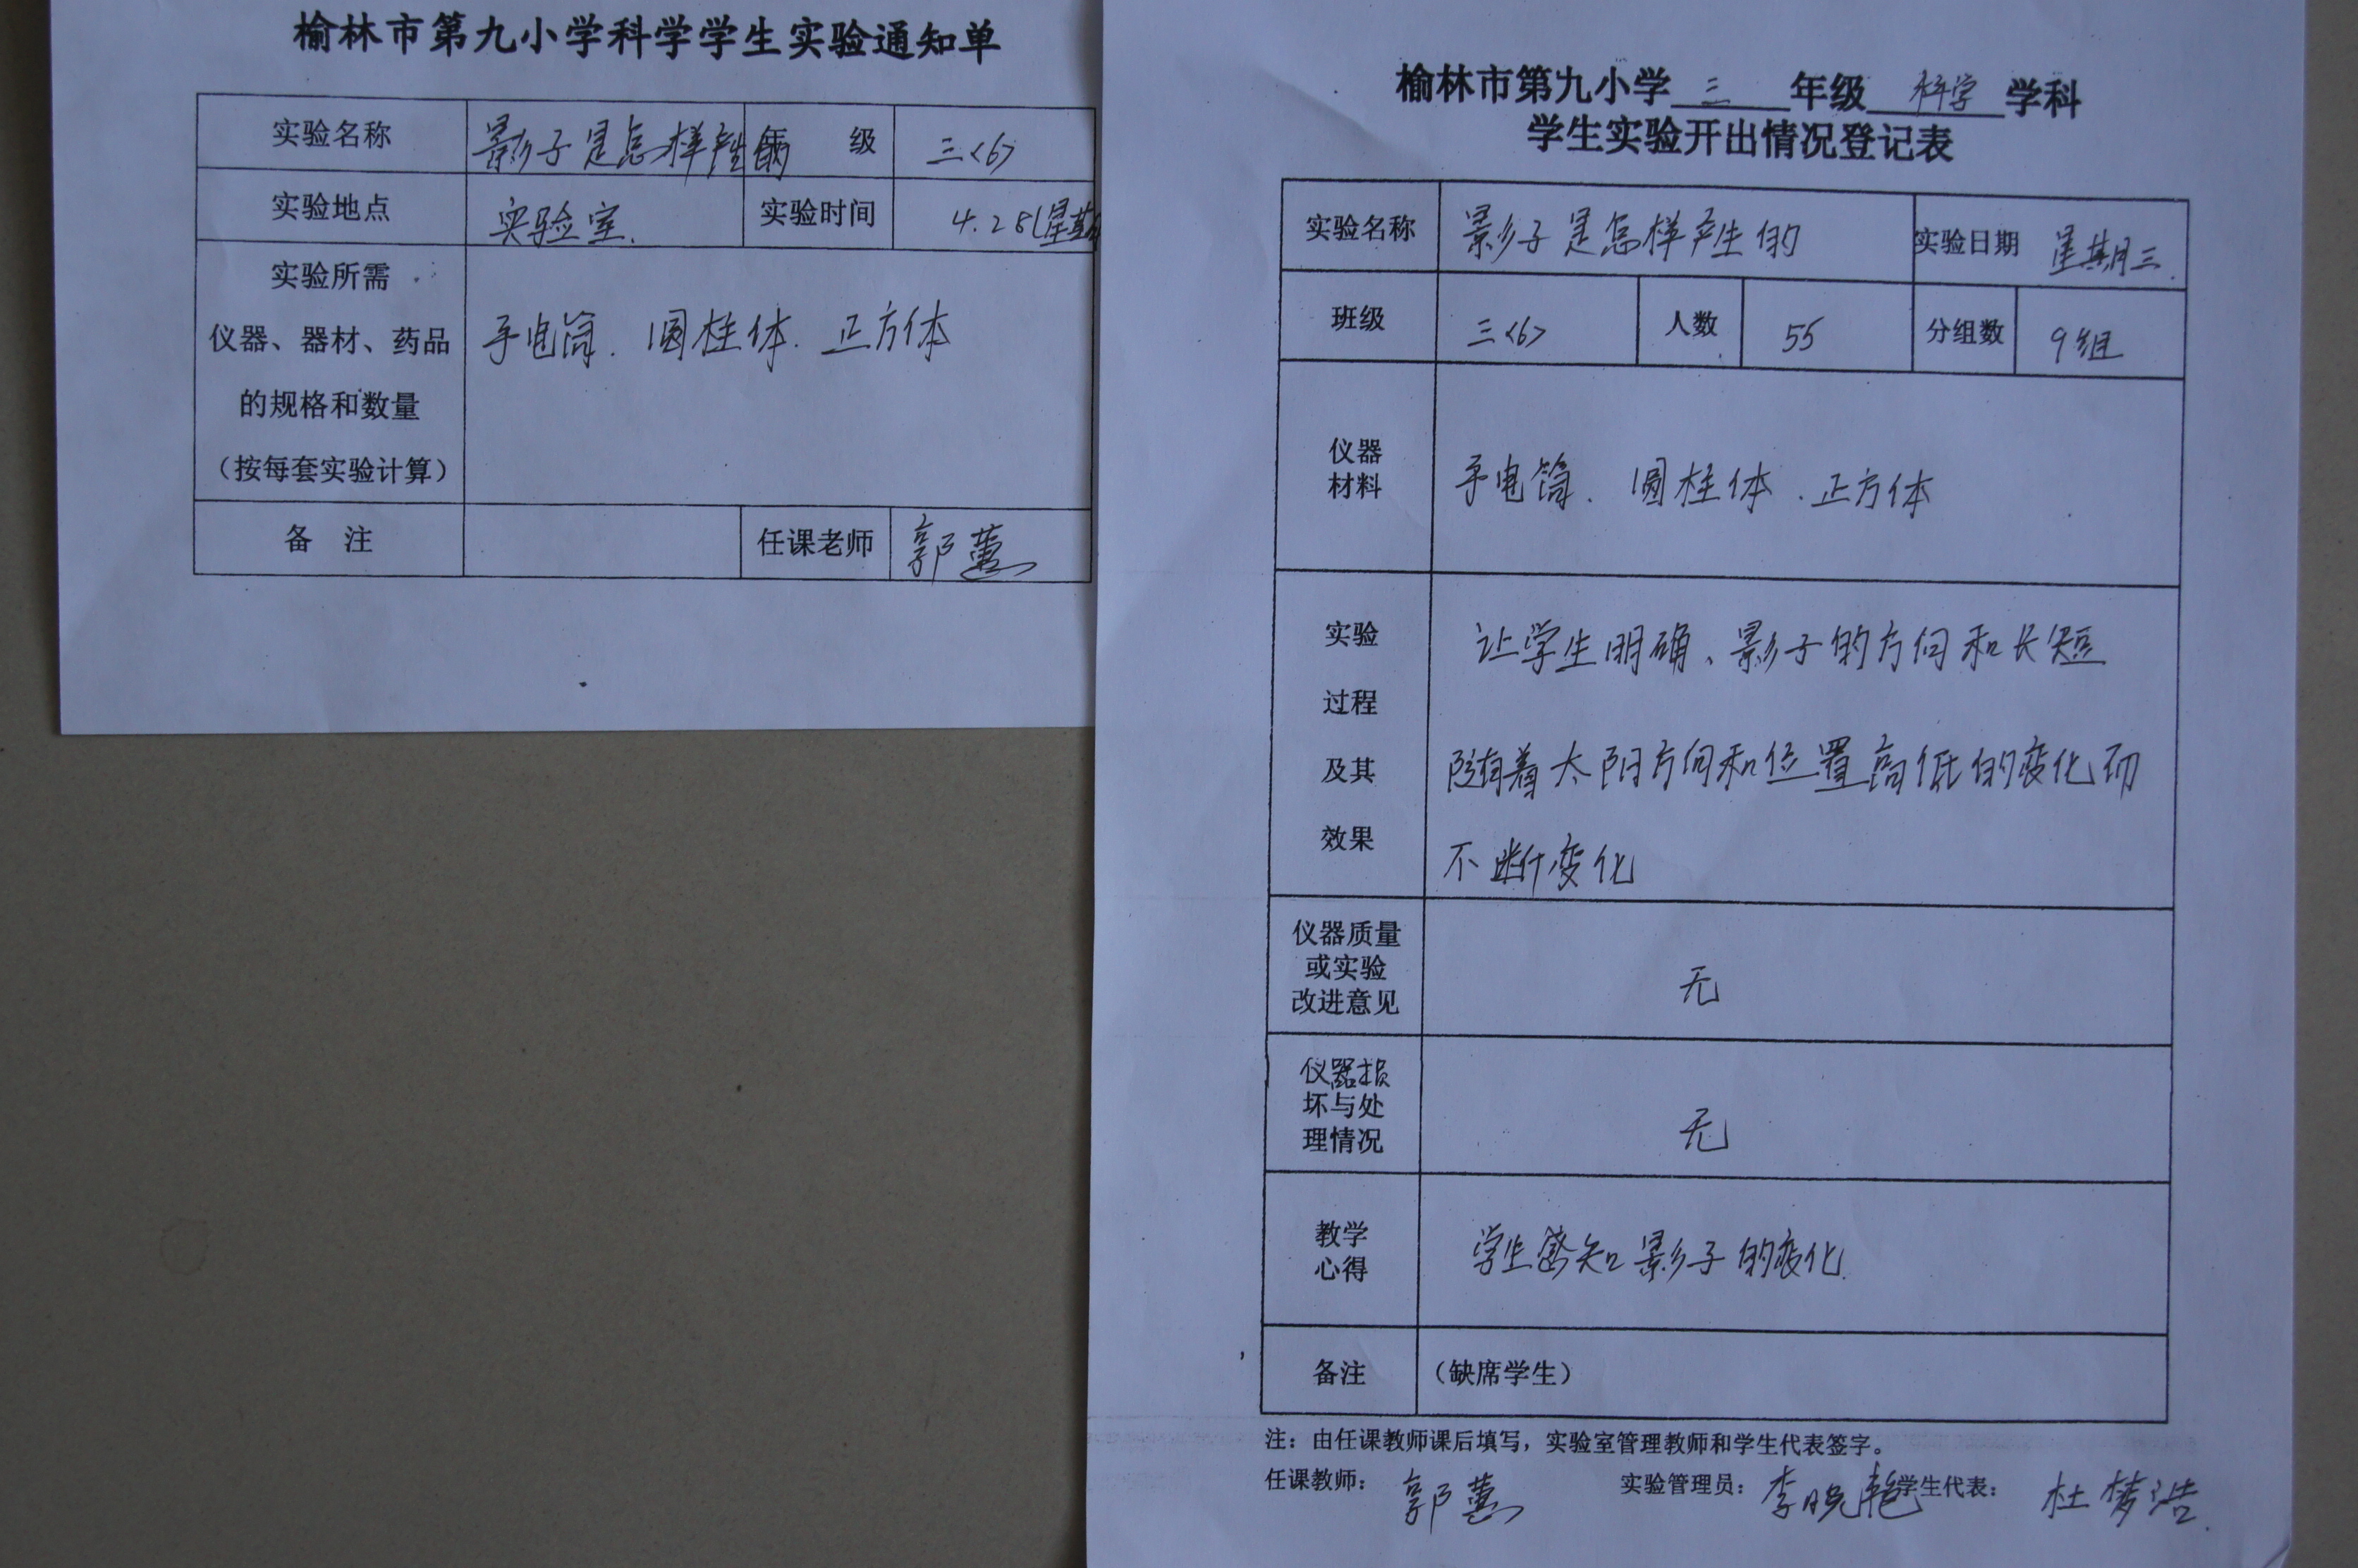 榆林市第九小学科学学生实验通知单
实验名称 影子是怎样产生的 年 级 三<6>
实验地点 实验室. 实验时间 4.28(星期
实验所需
仪器、器材、药品
的规格和数量
(按每套实验计算)
手电筒. 圆柱体. 正方体
备 注 任课老师 郭
榆林市第九小学 三 年级 科学 学科
学生实验开出情况登记表
实验名称 影子是怎样产生的 实验日期 星期三.
班级 三<6> 人数 55 分组数 9组
仪器
材料
手电筒. 圆柱体. 正方体
实验
过程
及其
效果
让学生明确、影子的方向和长短
随着太阳方向和位置高低的变化而
不断变化
仪器质量
或实验
改进意见
无
仪器损
坏与处
理情况
无
教学
心得
学生感知影子的变化.
备注 (缺席学生)
注:由任课教师课后填写,实验室管理教师和学生代表签字。
任课教师: 郭 实验管理员: 李晓艳 学生代表: 杜梦浩.